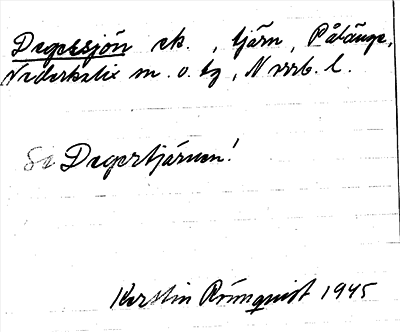 Degersjön ek. , tjärn, Pålänge,
Nederkalix sn. o. tg, Norrb. l.
Se Degertjärnen!
Kerstin Rönnquist 1945